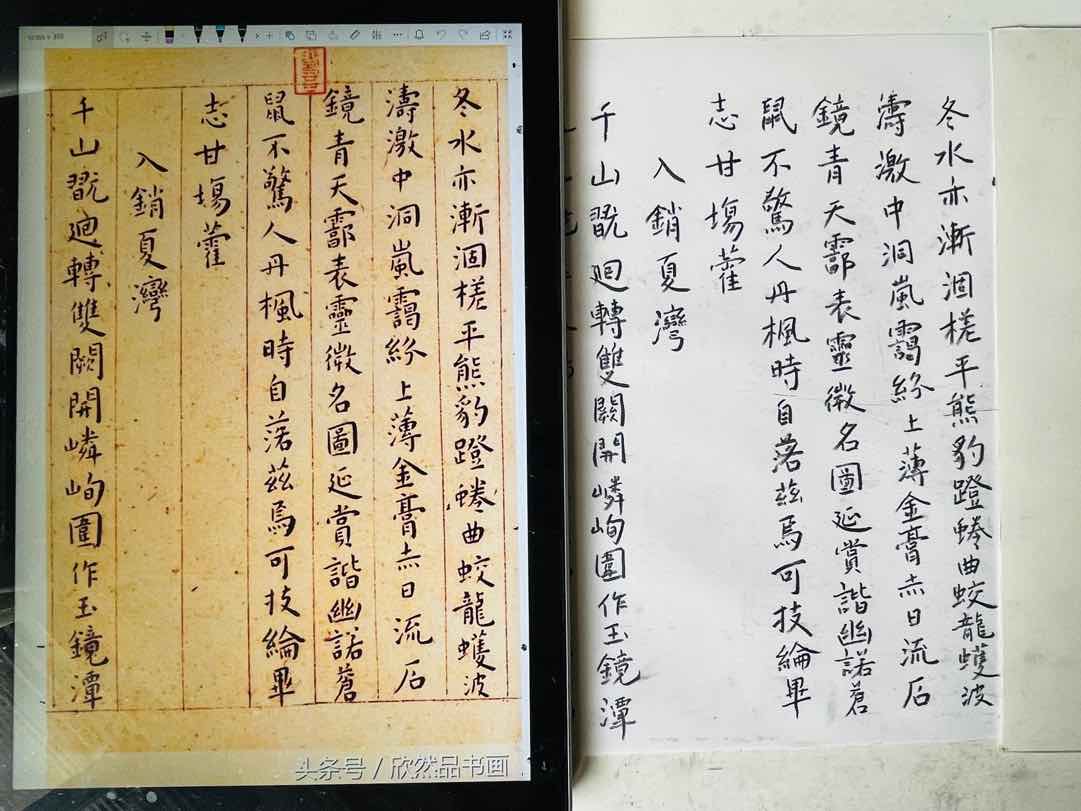 冬水亦漸涸槎平熊豹蹬蜷曲蛟龍蠖波
濤激中洞嵐靄紛上薄金膏赤日流石
鏡青天霩表靈徵名圖延賞諧幽諾蒼
鼠不驚人丹楓時自落茲焉可技綸畢
志甘場藿
入銷夏灣
千山翫迴轉雙闕開嶙峋圍作玉鏡潭
冬水亦漸涸槎平熊豹蹬蜷曲蛟龍蠖波
濤激中洞嵐靄紛上薄金膏赤日流石
鏡青天霩表靈徵名圖延賞諧幽諾蒼
鼠不驚人丹楓時自落茲焉可技綸畢
志甘場藿
入銷夏灣
千山翫迴轉雙闕開嶙峋圍作玉鏡潭
头条号 / 欣然品书画